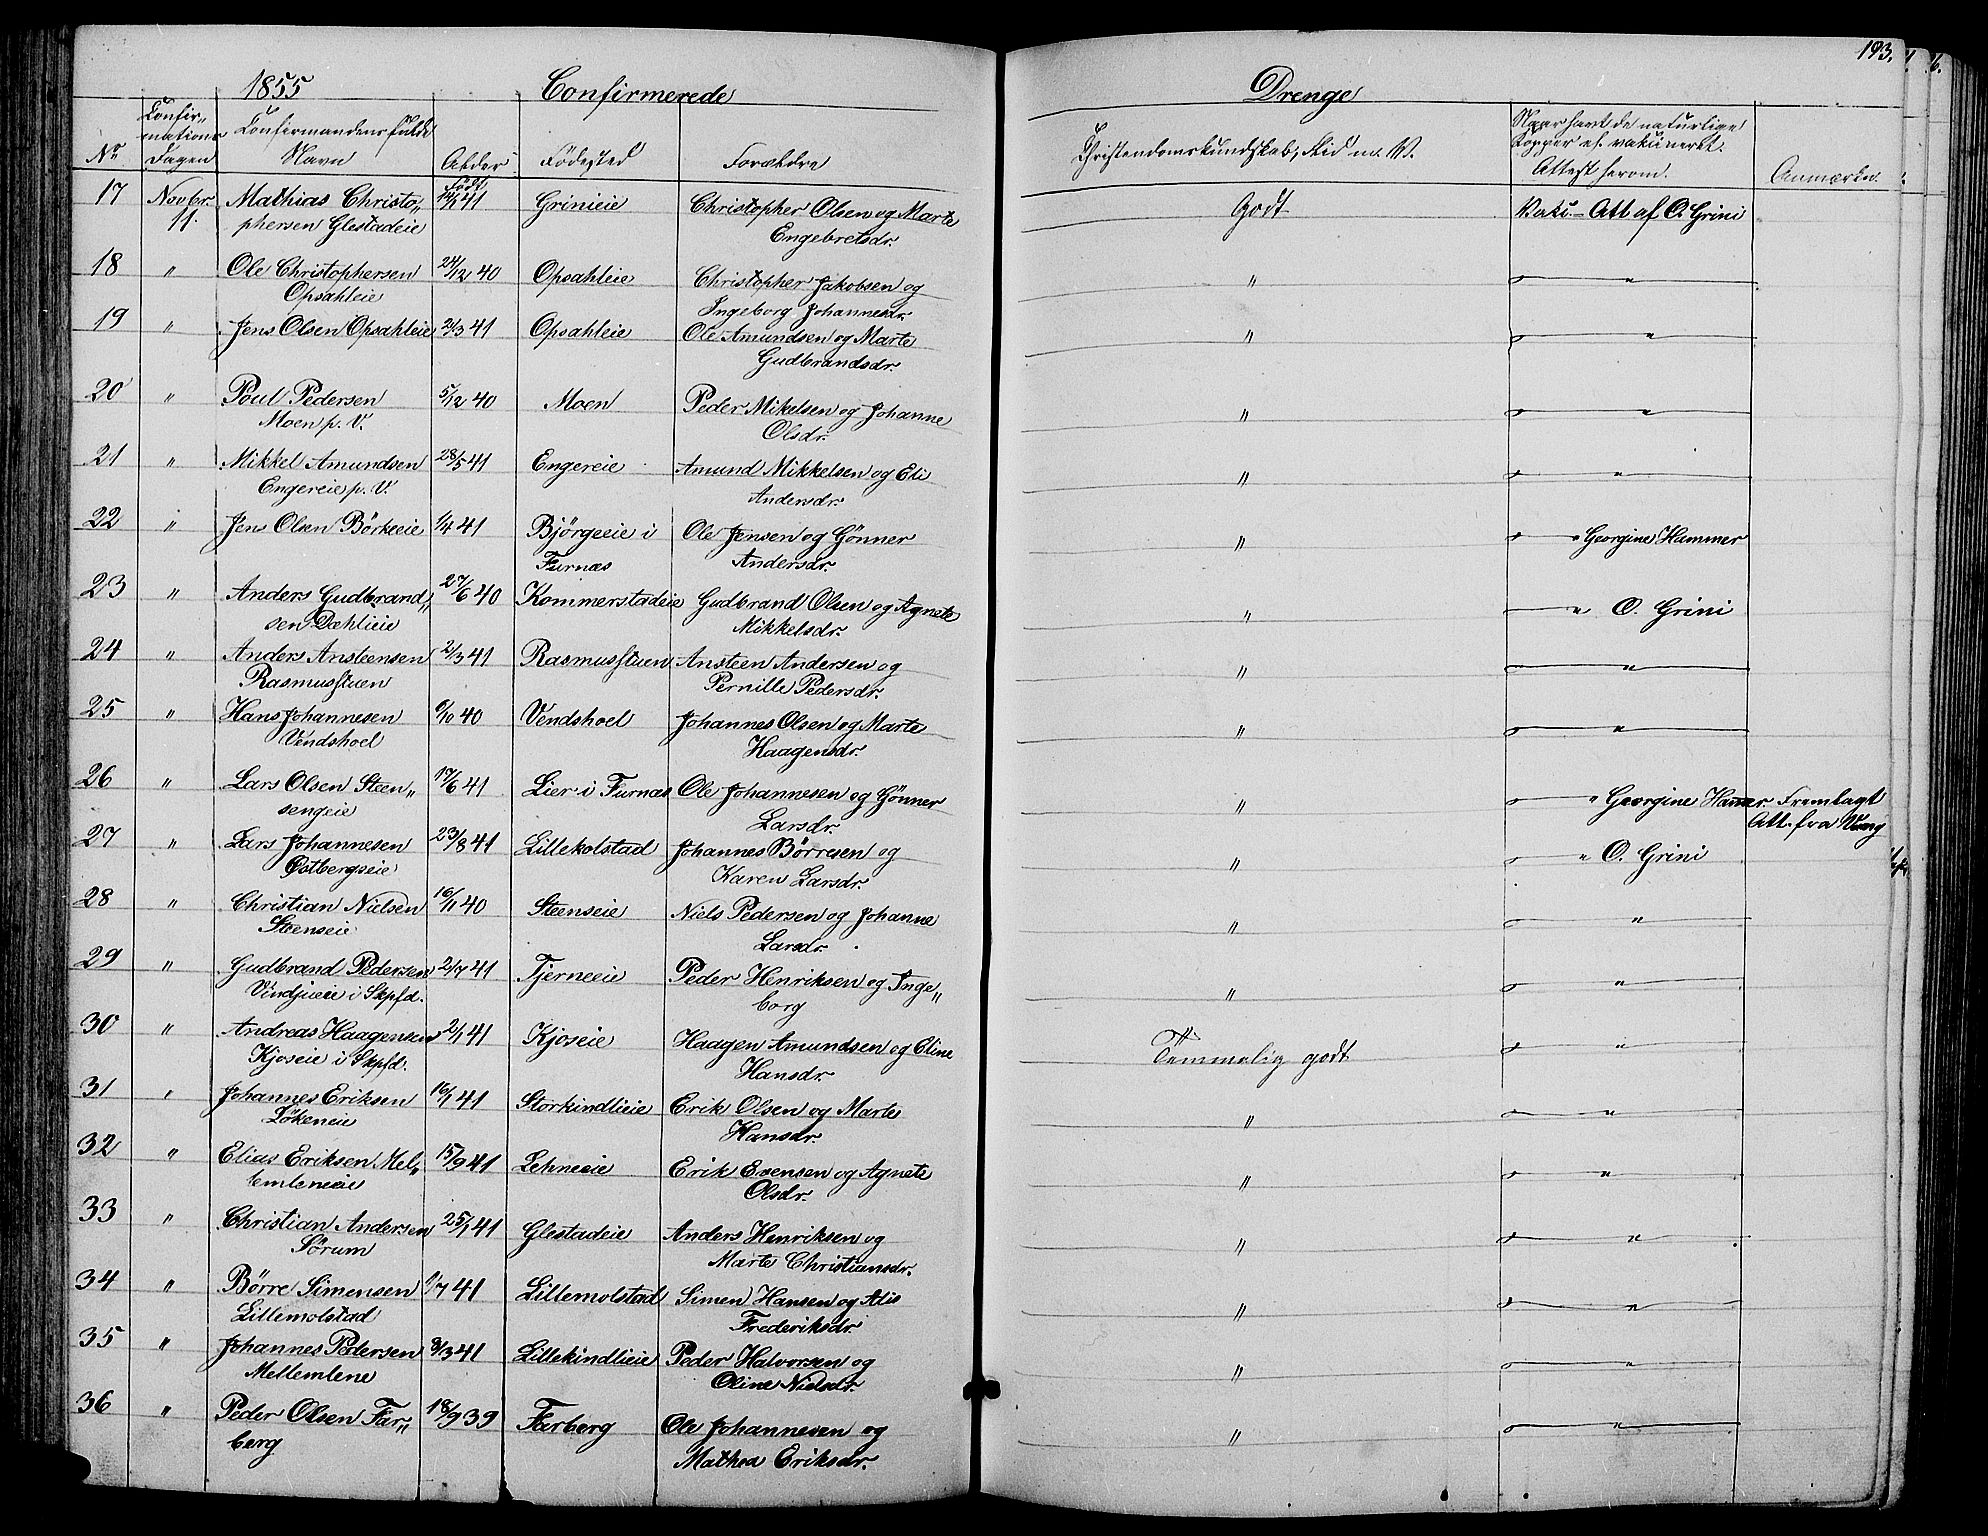 1855 Confirmerede
Drenge 193.
No Confirmations Dagen Confirmandens fulde Navn Alder Fødested Forældre Christendomskundskab, Flid m. V. Naar havt de naturlige Kopper el. vakcineret. Attest herom. Anmærkn.
Født
17 Novbr. Mathias Christo„ 41 Grinieie Christopher Olsen og Marte Godt Vakc. - Att af O. Grini
11. phersen Glestadeie Engebretsdr.
18 " Ole Christophersen 24/12 40 Opsahleie Christopher Jakobsen og " "
Opsahleie Ingeborg Johannesdr.
19 " Jens Olsen Opsahleie 2/3 41 Opsahleie Ole Amundsen og Marte " "
Gudbrandsdr.
20 " Poul Pedersen 5/12 40 Moen Peder Mikelsen og Johanne " "
Moen p. V. Olsdr.
21 " Mikkel Amundsen 28/5 41 Engereie Amund Mikkelsen og Eli " "
Engereie p. V. Andersdr.
22 " Jens Olsen Börkeeie 1/4 41 Bjørgeeie i Ole Jensen og Gönner " " Georgine Hammer
Furnæs Andersdr.
23 " Anders Gudbrand„ 27/6 40 Kommerstadeie Gudbrand Olsen og Agnete " " O. Grini
sen Dæhlieie Mikkelsdr.
24 " Anders Ansteensen 2/3 41 Rasmusstuen Ansteen Andersen og " "
Rasmusstuen Pernille Pedersdr.
25 " Hans Johannesen 6/10 40 Vendshoel Johannes Olsen og Marte " "
Vendshoel Haagensdr.
26 " Lars Olsen Steen„ 17/6 41 Lier i Furnæs Ole Johannesen og Gönner " " Georgine Hamer. Fremlagt
sengeie Larsdr. Att. fra Vang
27 " Lars Johannesen 23/8 41 Lillekolstad Johannes Börresen og " " O. Grini
Østbergseie Karen Larsdr.
28 " Christian Nielsen 16/11 40 Steenseie Niels Pedersen og Johanne " "
Steenseie Larsdr.
29 " Gudbrand Pedersen 2/7 41 Tjerneeie Peder Henriksen og Inge„ " "
Vindjueie i Skpfd. borg
30 " Andreas Haagensen 2/1 41 Kjoseie Haagen Amundsen og Eline Temmelig godt "
Kjoseie i Skpfd. Hansdr.
31 " Johannes Eriksen 16/1 41 Storkindlieie Erik Olsen og Marte " "
Lökeneie Hansdr.
32 " Elias Eriksen Mel„ 15/9 41 Lehneeie Erik Evensen og Agnete " "
lemleneeie Olsdr.
33 " Christian Andersen 25/1 41 Glestadeie Anders Henriksen og " "
Sörum Marte Christiansdr.
34 " Börre Simensen 1/7 41 Lillemolstad Simen Hansen og Alis " "
Lillemolstad Frederiksdr.
35 " Johannes Pedersen 8/3 41 Lillekindlieie Peder Halvorsen og " "
Mellemlene Oline Nielsdr.
36 " Peder Olsen Far„ 18/9 39 Farberg Ole Johannesen og " "
berg Mathea Eriksdr.